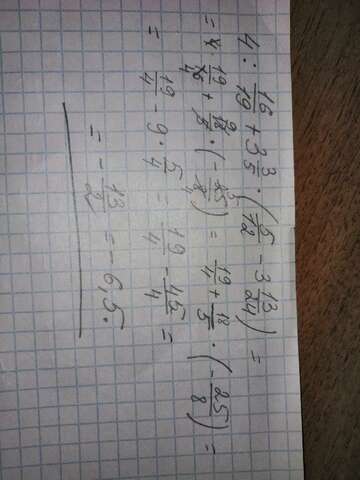 4 : 16/19 + 3 3/5 · (5/12 - 3 13/24) =
= 4 · 19/16 + 18/5 · (-25/8) = 19/4 + 18/5 · (-25/8) =
= 19/4 - 9 · 5/4 = 19/4 - 45/4 =
= -13/2 = -6,5.